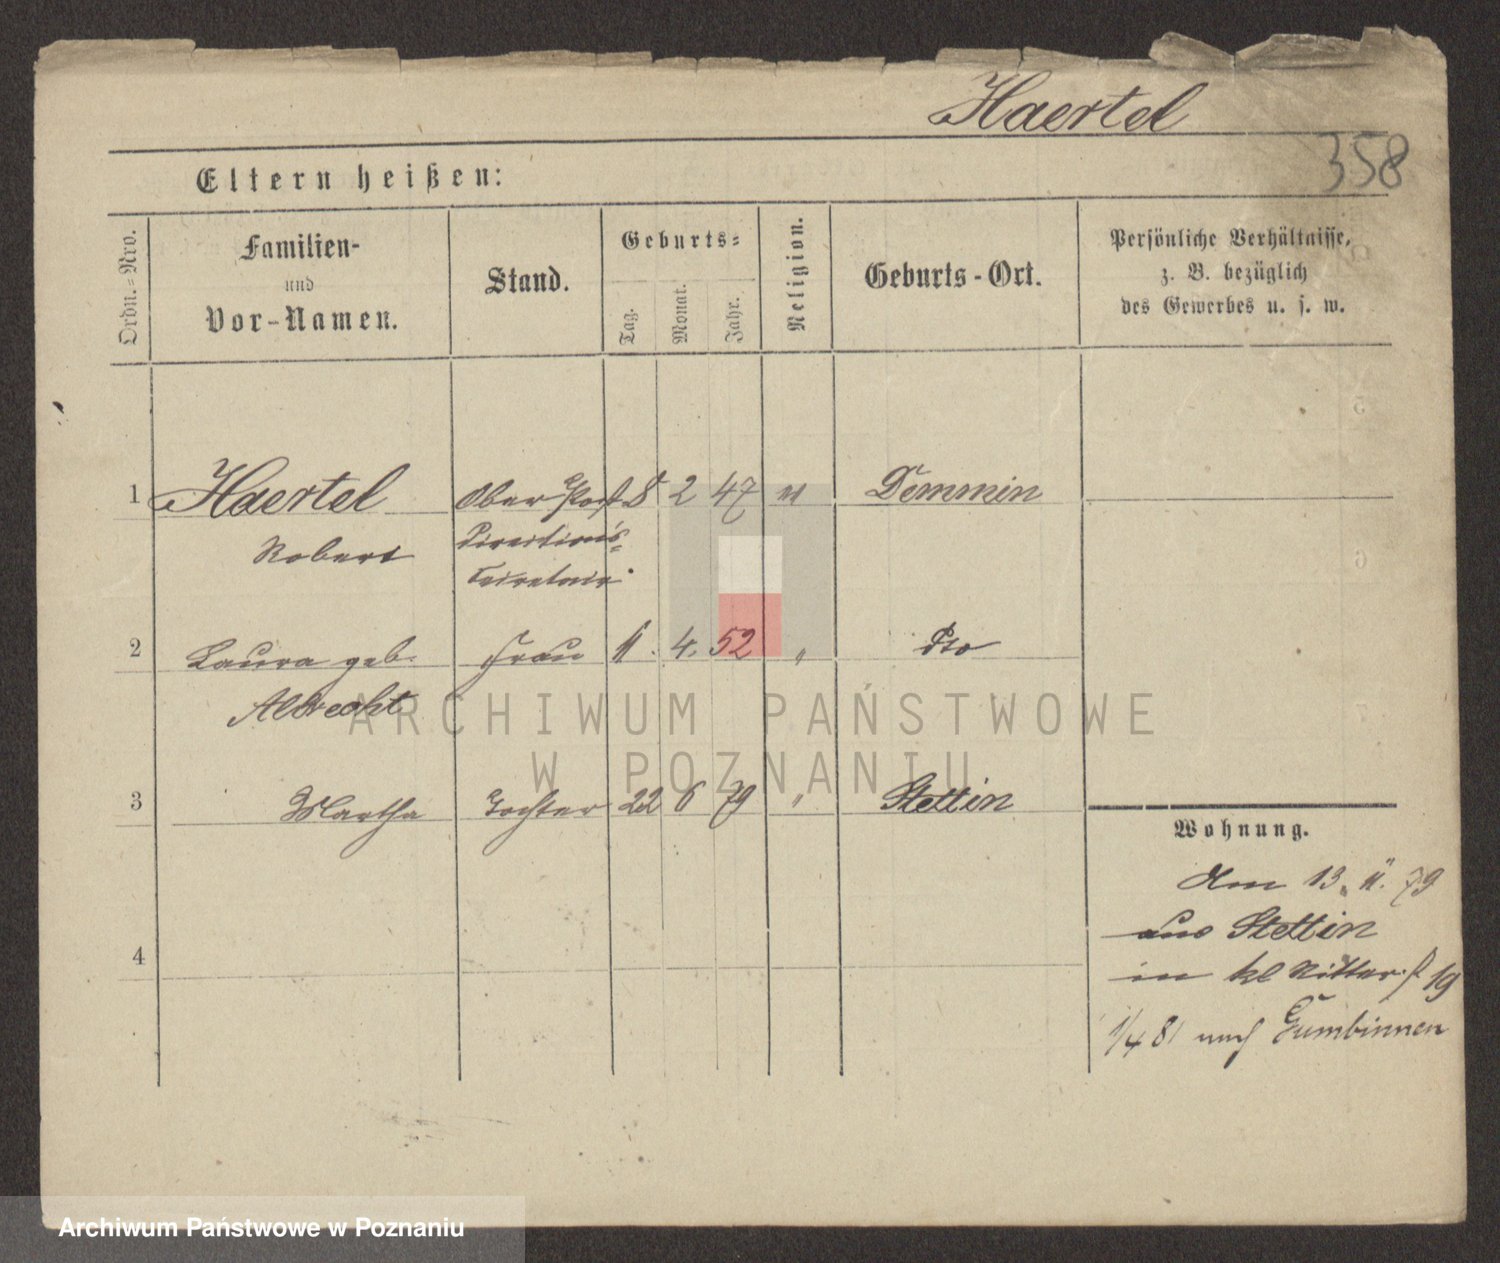 Haertel
358
Eltern heißen:
Ordn.-Nro.
Familien-
und
Vor-Namen.
Stand.
Geburts-
Tag.
Monat.
Jahr.
Religion.
Geburts-Ort.
Persönliche Verhältnisse,
z. B. bezüglich
des Gewerbes u. s. w.
1 Haertel Ober Post 8 2 47 Demmin
Robert Directions-
Secretair.
2 Laura geb. Frau 11. 4. 52 " Dto
Albrecht
3 Martha Tochter 22 6 79 " Stettin
4
Wohnung.
Am 13. 11. 79
aus Stettin
in kl Ritterst 19
1/4 81 nach Gumbinnen
ARCHIWUM PAŃSTWOWE
W POZNANIU
Archiwum Państwowe w Poznaniu